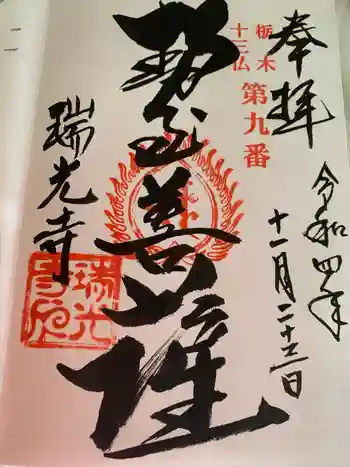 奉拝
令和四年
十一月二十三日
栃木
十三仏
第九番
勢至菩薩
瑞光寺